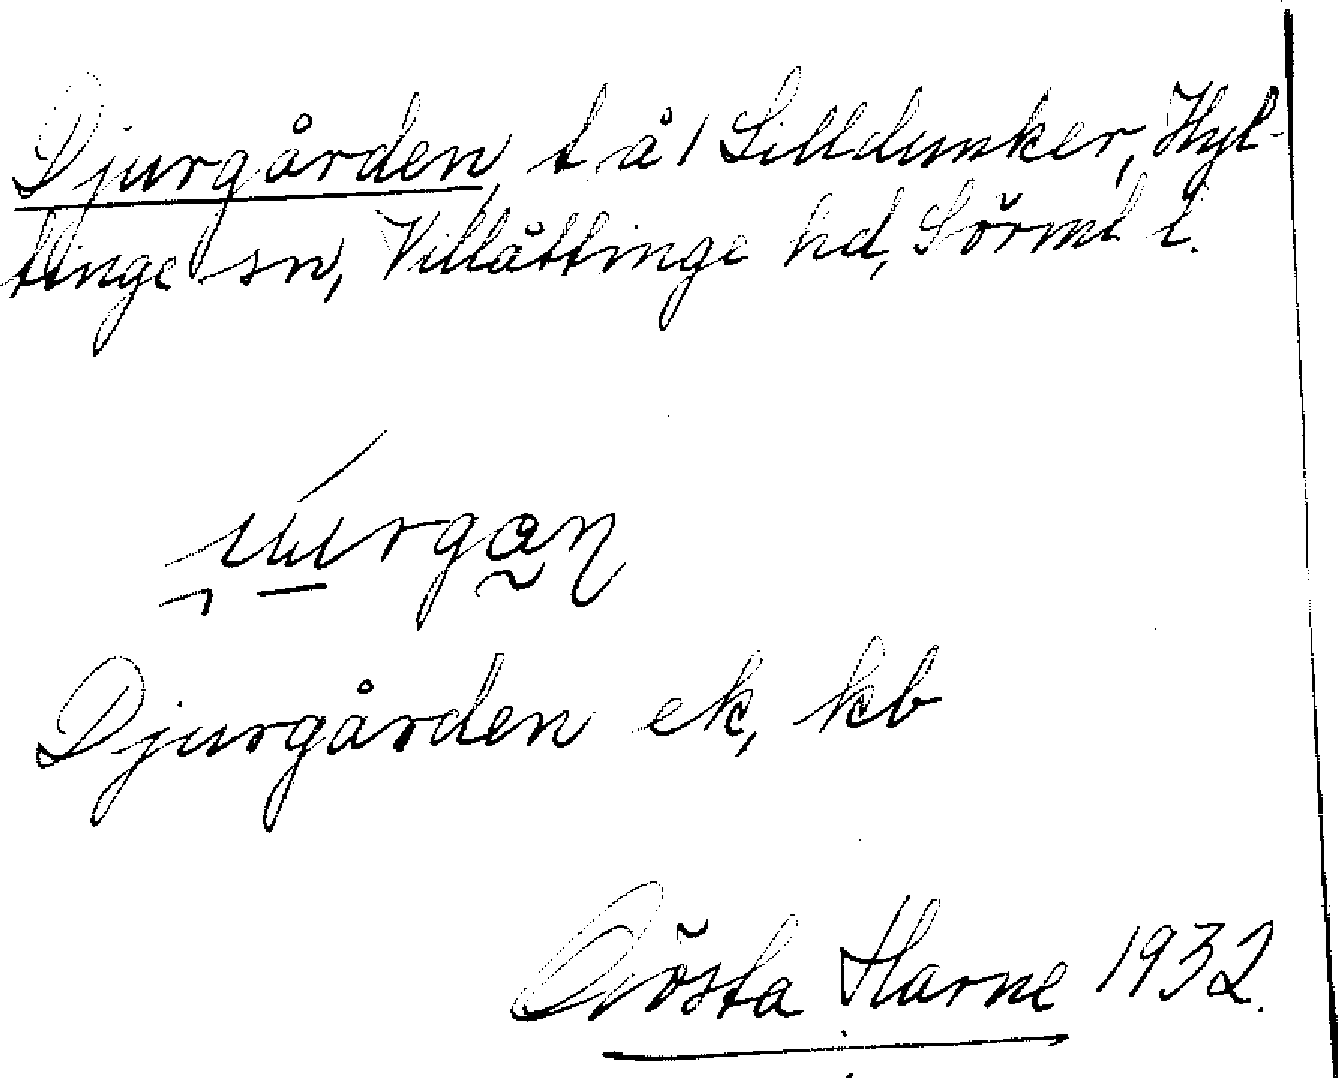 Djurgården, t å 1 Lilldunker, Hyl-
tinge sn, Villåttinge hd, Sörml l.
Djurgården ek, kb
Gösta Harne 1932.